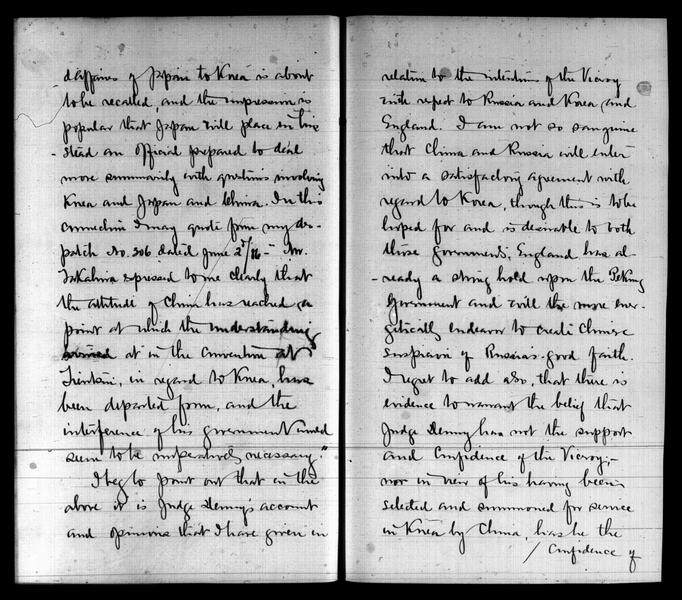 d'affaires of Japan to Korea is about
to be recalled, and the impression is
popular that Japan will place in his
stead an official prepared to deal
more summarily with questions involving
Korea and Japan and China. In this
connection I may quote from my des-
patch No. 306 dated June 2"/86 - "Mr.
Takahira expressed to me clearly that
the attitude of China has reached a
point at which the understanding
arrived at in the Convention at
Tientsin, in regard to Korea, has
been departed from, and the
interference of his government would
seem to be imperatively necessary."
I beg to point out that in the
above it is Judge Denny's account
and opinions that I have given in
relation to the intention of the Viceroy
with respect to Russia and Korea and
England. I am not so sanguine
that China and Russia will enter
into a satisfactory agreement with
regard to Korea, though this is to be
hoped for and is desirable to both
those governments, England has al-
ready a strong hold upon the Peking
Government and will the more ener-
getically endeavor to create Chinese
suspicion of Russia's good faith.
I regret to add also, that there is
evidence to warrant the belief that
Judge Denny has not the support
and confidence of the Viceroy;-
nor in view of his having been
selected and summoned for service
in Korea by China, has he the
/ Confidence of